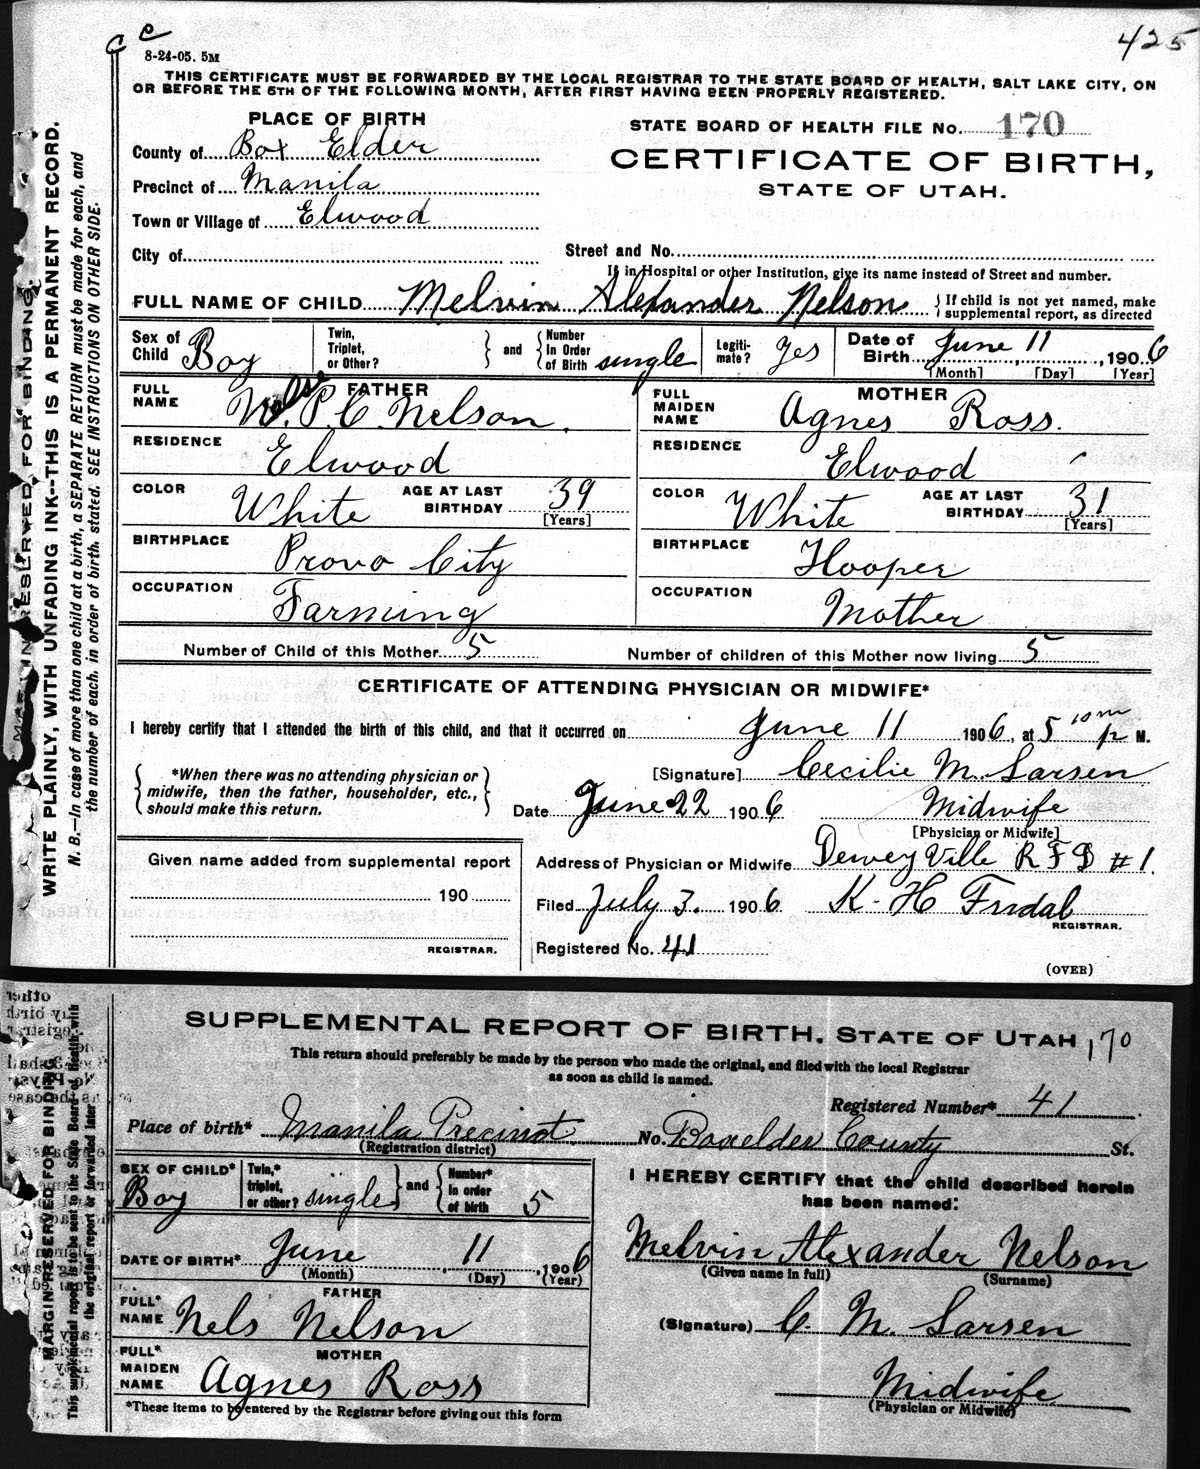 C C
425
8-24-05. 5M
THIS CERTIFICATE MUST BE FORWARDED BY THE LOCAL REGISTRAR TO THE STATE BOARD OF HEALTH, SALT LAKE CITY, ON
OR BEFORE THE 5TH OF THE FOLLOWING MONTH, AFTER FIRST HAVING BEEN PROPERLY REGISTERED.
PLACE OF BIRTH
STATE BOARD OF HEALTH FILE No. 170
County of Box Elder
CERTIFICATE OF BIRTH,
Precinct of Manila
STATE OF UTAH.
Town or Village of Elwood
City of
Street and No.
If in Hospital or other Institution, give its name instead of Street and number.
FULL NAME OF CHILD Melvin Alexander Nelson { If child is not yet named, make
supplemental report, as directed
Sex of Child Boy
Twin, Triplet, or Other? } and { Number In Order of Birth single
Legiti-mate? Yes
Date of Birth June 11, 1906
[Month] [Day] [Year]
FATHER
FULL NAME P. C. Nelson.
MOTHER
FULL MAIDEN NAME Agnes Ross.
RESIDENCE Elwood
RESIDENCE Elwood
COLOR White AGE AT LAST BIRTHDAY 39 [Years]
COLOR White AGE AT LAST BIRTHDAY 31 [Years]
BIRTHPLACE Provo City
BIRTHPLACE Hooper
OCCUPATION Farming
OCCUPATION Mother
Number of Child of this Mother 5 Number of children of this Mother now living 5
CERTIFICATE OF ATTENDING PHYSICIAN OR MIDWIFE*
I hereby certify that I attended the birth of this child, and that it occurred on June 11 1906, at 5 10m P M.
{ *When there was no attending physician or midwife, then the father, householder, etc., should make this return. }
[Signature] Cecilie M. Larsen
Date June 22 1906 Midwife
[Physician or Midwife]
Given name added from supplemental report
190
REGISTRAR.
Address of Physician or Midwife Deweyville R F D #1.
Filed July 3. 1906 K. H. Fridal
REGISTRAR.
Registered No. 41
(OVER)
MARGIN RESERVED FOR BINDING.
WRITE PLAINLY, WITH UNFADING INK--THIS IS A PERMANENT RECORD.
N. B.—In case of more than one child at a birth, a SEPARATE RETURN must be made for each, and
the number of each, in order of birth, stated. SEE INSTRUCTIONS ON OTHER SIDE.
SUPPLEMENTAL REPORT OF BIRTH. STATE OF UTAH 170
This return should preferably be made by the person who made the original, and filed with the local Registrar
as soon as child is named.
Registered Number* 41
Place of birth* Manila Precinct No. Boxelder County St.
(Registration district)
SEX OF CHILD* Boy
Twin,* triplet, or other? single } and { Number* In order of birth 5
I HEREBY CERTIFY that the child described herein
has been named:
DATE OF BIRTH* June 11, 1906
(Month) (Day) (Year)
Melvin Alexander Nelson
(Given name in full) (Surname)
FATHER
FULL* NAME Nels Nelson
(Signature) C. M. Larsen
MOTHER
FULL* MAIDEN NAME Agnes Ross
Midwife
(Physician or Midwife)
*These items to be entered by the Registrar before giving out this form
MARGIN RESERVED FOR BINDING
This supplemental report is to be sent to the State Board of Health with
the original report or forwarded later